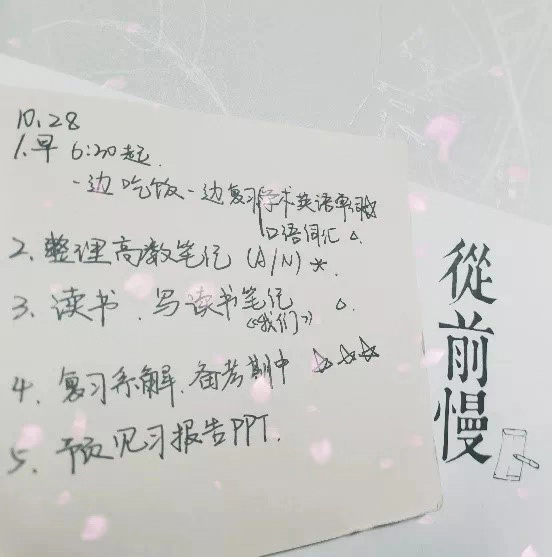 10.28
1.早 6:20起.
一边吃饭一边复习学术英语单词☆
口语词汇 △.
2.整理高数笔记 (A/N) *.
3.读书、写读书笔记 △.
《我们》
4.复习系解、备考期中 ☆☆☆
5.预见习报告PPT.
從前慢